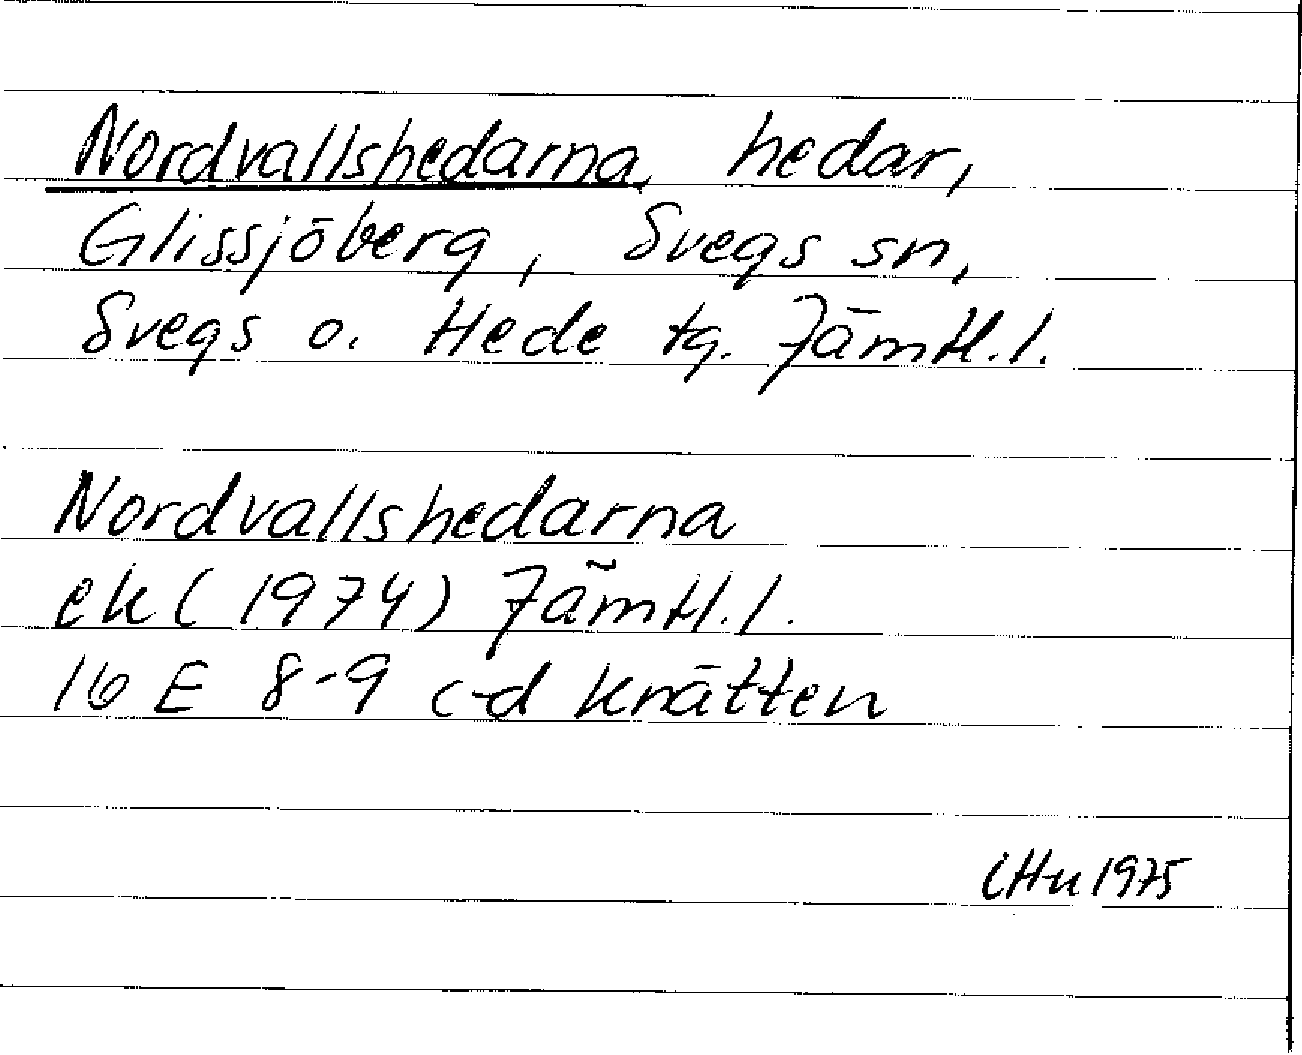 Nordvallshedarna, hedar,
Glissjöberg, Svegs sn,
Svegs o. Hede tg. Jämtl.l.
Nordvallshedarna
ek (1974) Jämtl.l.
16 E 8-9 c-d Knätten
1975